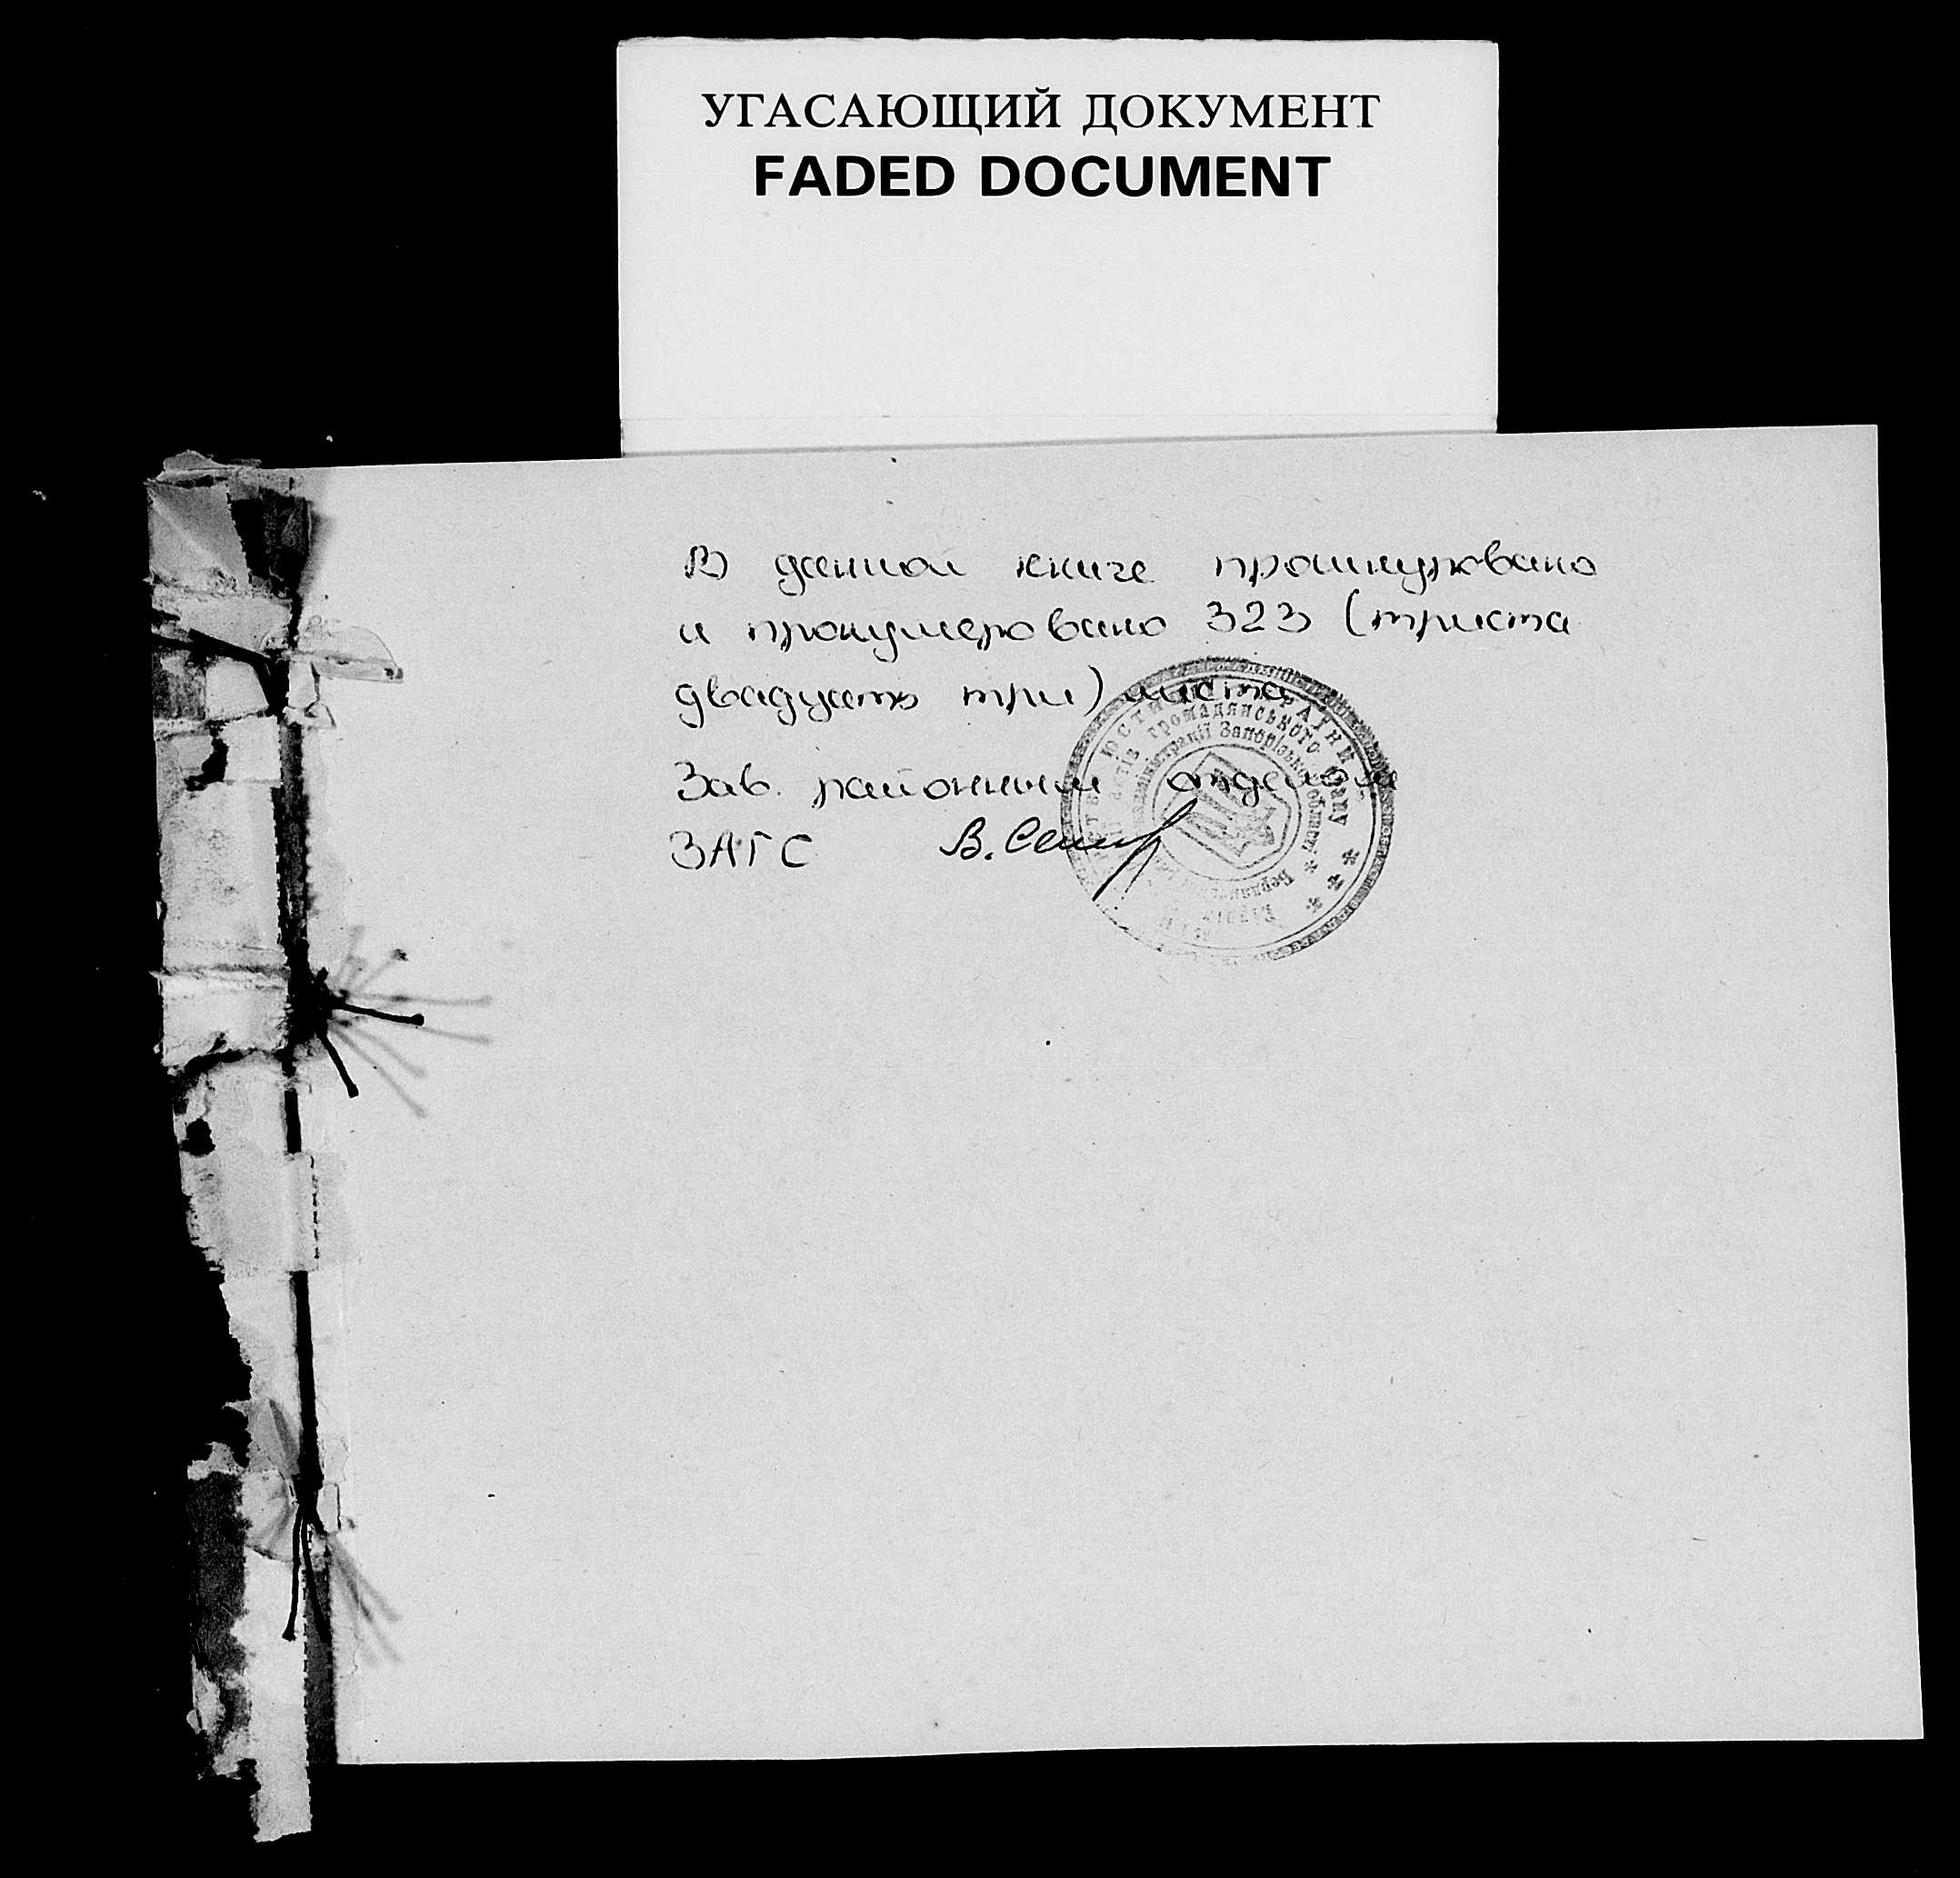 УГАСАЮЩИЙ ДОКУМЕНТ
FADED DOCUMENT
В данной книге прошнуровано
и пронумеровано 323 (триста
двадцать три) листа
Зав. районным отделом
ЗАГС В.
громадянського стану
Запорізької області